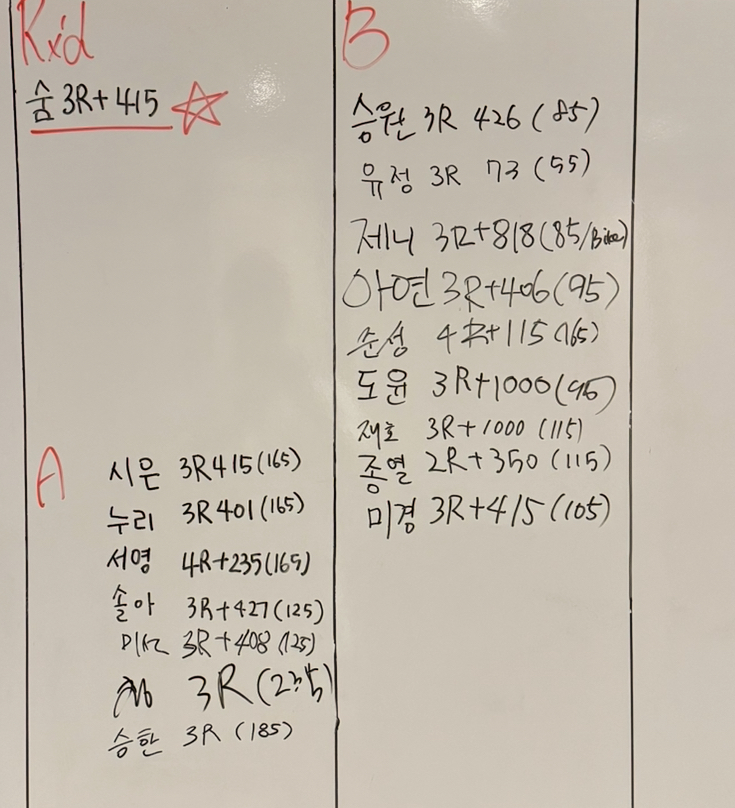 Kid
숨 3R+415
A
시은 3R 415(165)
누리 3R 401(165)
서영 4R+235(165)
솔아 3R+427(125)
3R+408(125)
3R(235)
승한 3R (185)
B
승원 3R 426(85)
유정 3R 73(55)
제니 3R+818(85/Bike)
아연 3R+406(95)
준성 4R+115(165)
도윤 3R+1000(95)
재호 3R+1000(115)
종열 2R+350(115)
미경 3R+415(105)